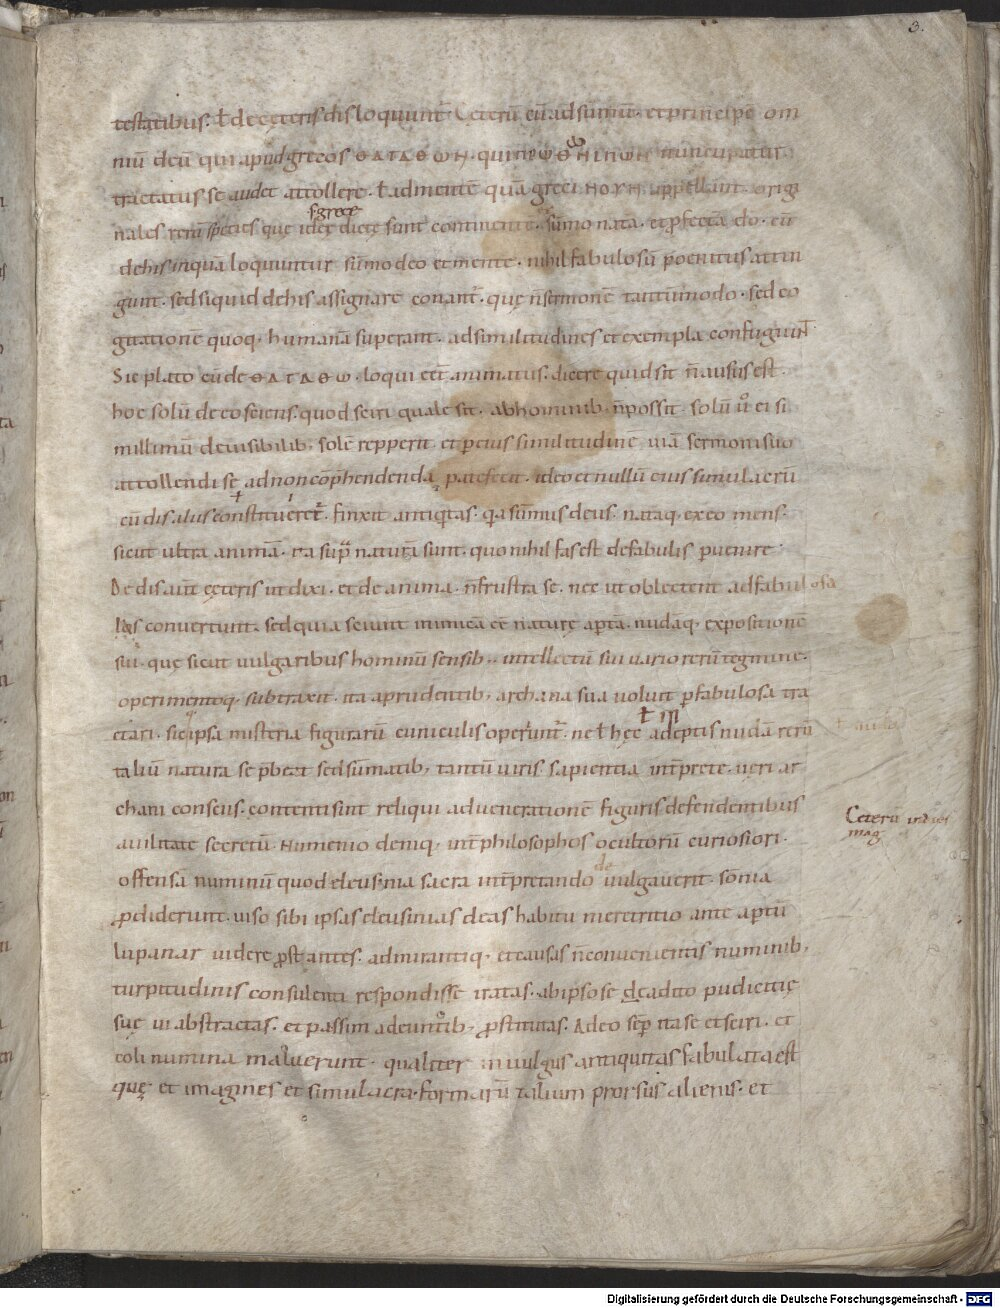 3.
testatibus. ł de cęteris dis loquunt̄. Cęterū cū ad sūmū. et principē om
niū deū qui apud grecos ΘΑΤΑΘωΝ. qui
tractatus se audet attollere. ł ad mentē quā greci ΝΟΥΝ appellant. orig
nales rerū species que ideę dictę sunt continentē. sūmo nata. et ꝓfectā dō. cū
s. grece
de his inquā loquuntur sūmo deo et mente. nihil fabulosū poenitus attin
gunt. sed siquid de his assignare conant̄. quę n̄ sermonē tantūmodo. sed co
gitationē quoq. humanā superant. ad similitudines et exempla confugiunt̄
Sic plato cū de ΘΑΓΑΘω. loqui eēt animatus. dicere quid sit n̄ ausus est.
hoc solū de eo sciens. quod sciri quale sit. ab hominib. n̄ possit. solū u̇o ei si
millimū de uisibilib; solē repperit et ꝑ eius similitudinē uiā sermoni suo
attollendi se ad non cōp̄hendenda patefecit. ideo et nullū eius simulacrū
cū dis aliis constitueret̄. finxit antiqtas. qa sūmus deus. nataq. ex eo mens.
sicut ultra animā. ita sup̄ naturā sunt. quo nihil fas est de fabulis ꝑuenire.
De dis aut̄ cęteris ut dixi. et de anima. n̄ frustra se. nec ut oblectent ad fabulosa
convertunt. sed quia sciunt inimicā eē naturę aꝑtā. nudāq. expositionē
sui. quę sicut uulgaribus hominū sensib;. intellectū sui uario rerū tegmine.
operimentoq. subtraxit. ita a prudentib; archana sua uoluit ꝑ fabulosa tra
ctari. sic ipsa misteria figurarū cuniculis operiunt̄. ne ł hęc adeptis nudā rerū
taliū natura se p̄beat sed sūmatib; tantū uiris sapientia int̄prete. ueri ar
chani consciis. contenti sint reliqui ad uenerationē figuris defendentibus
a uilitate secretū. Numenio deniq. int̄ philosophos occultorū curiosiori.
Ceterū
offensā numinū quod eleusinia sacra int̄pretando uulgauerit. somnia
de
ꝓdiderunt. uiso sibi ipsas eleusinias deas habitu meretritio ante aꝑtū
lupanar uidere ꝓstantes. admirantiq. et causas n̄ convenientis numinib;
turpitudinis consulenti respondisse iratas. ab ipso se de adito pudicitię
suę ui abstractas. et passim adeuntib; ꝓstitutas. Adeo sēp ita se et sciri. et
coli numina maluerunt. qualiter in uulgus antiquitas fabulata est
quę et imagines et simulacra. formarū talium prorsus alienis. et
Digitalisierung gefördert durch die Deutsche Forschungsgemeinschaft - DFG